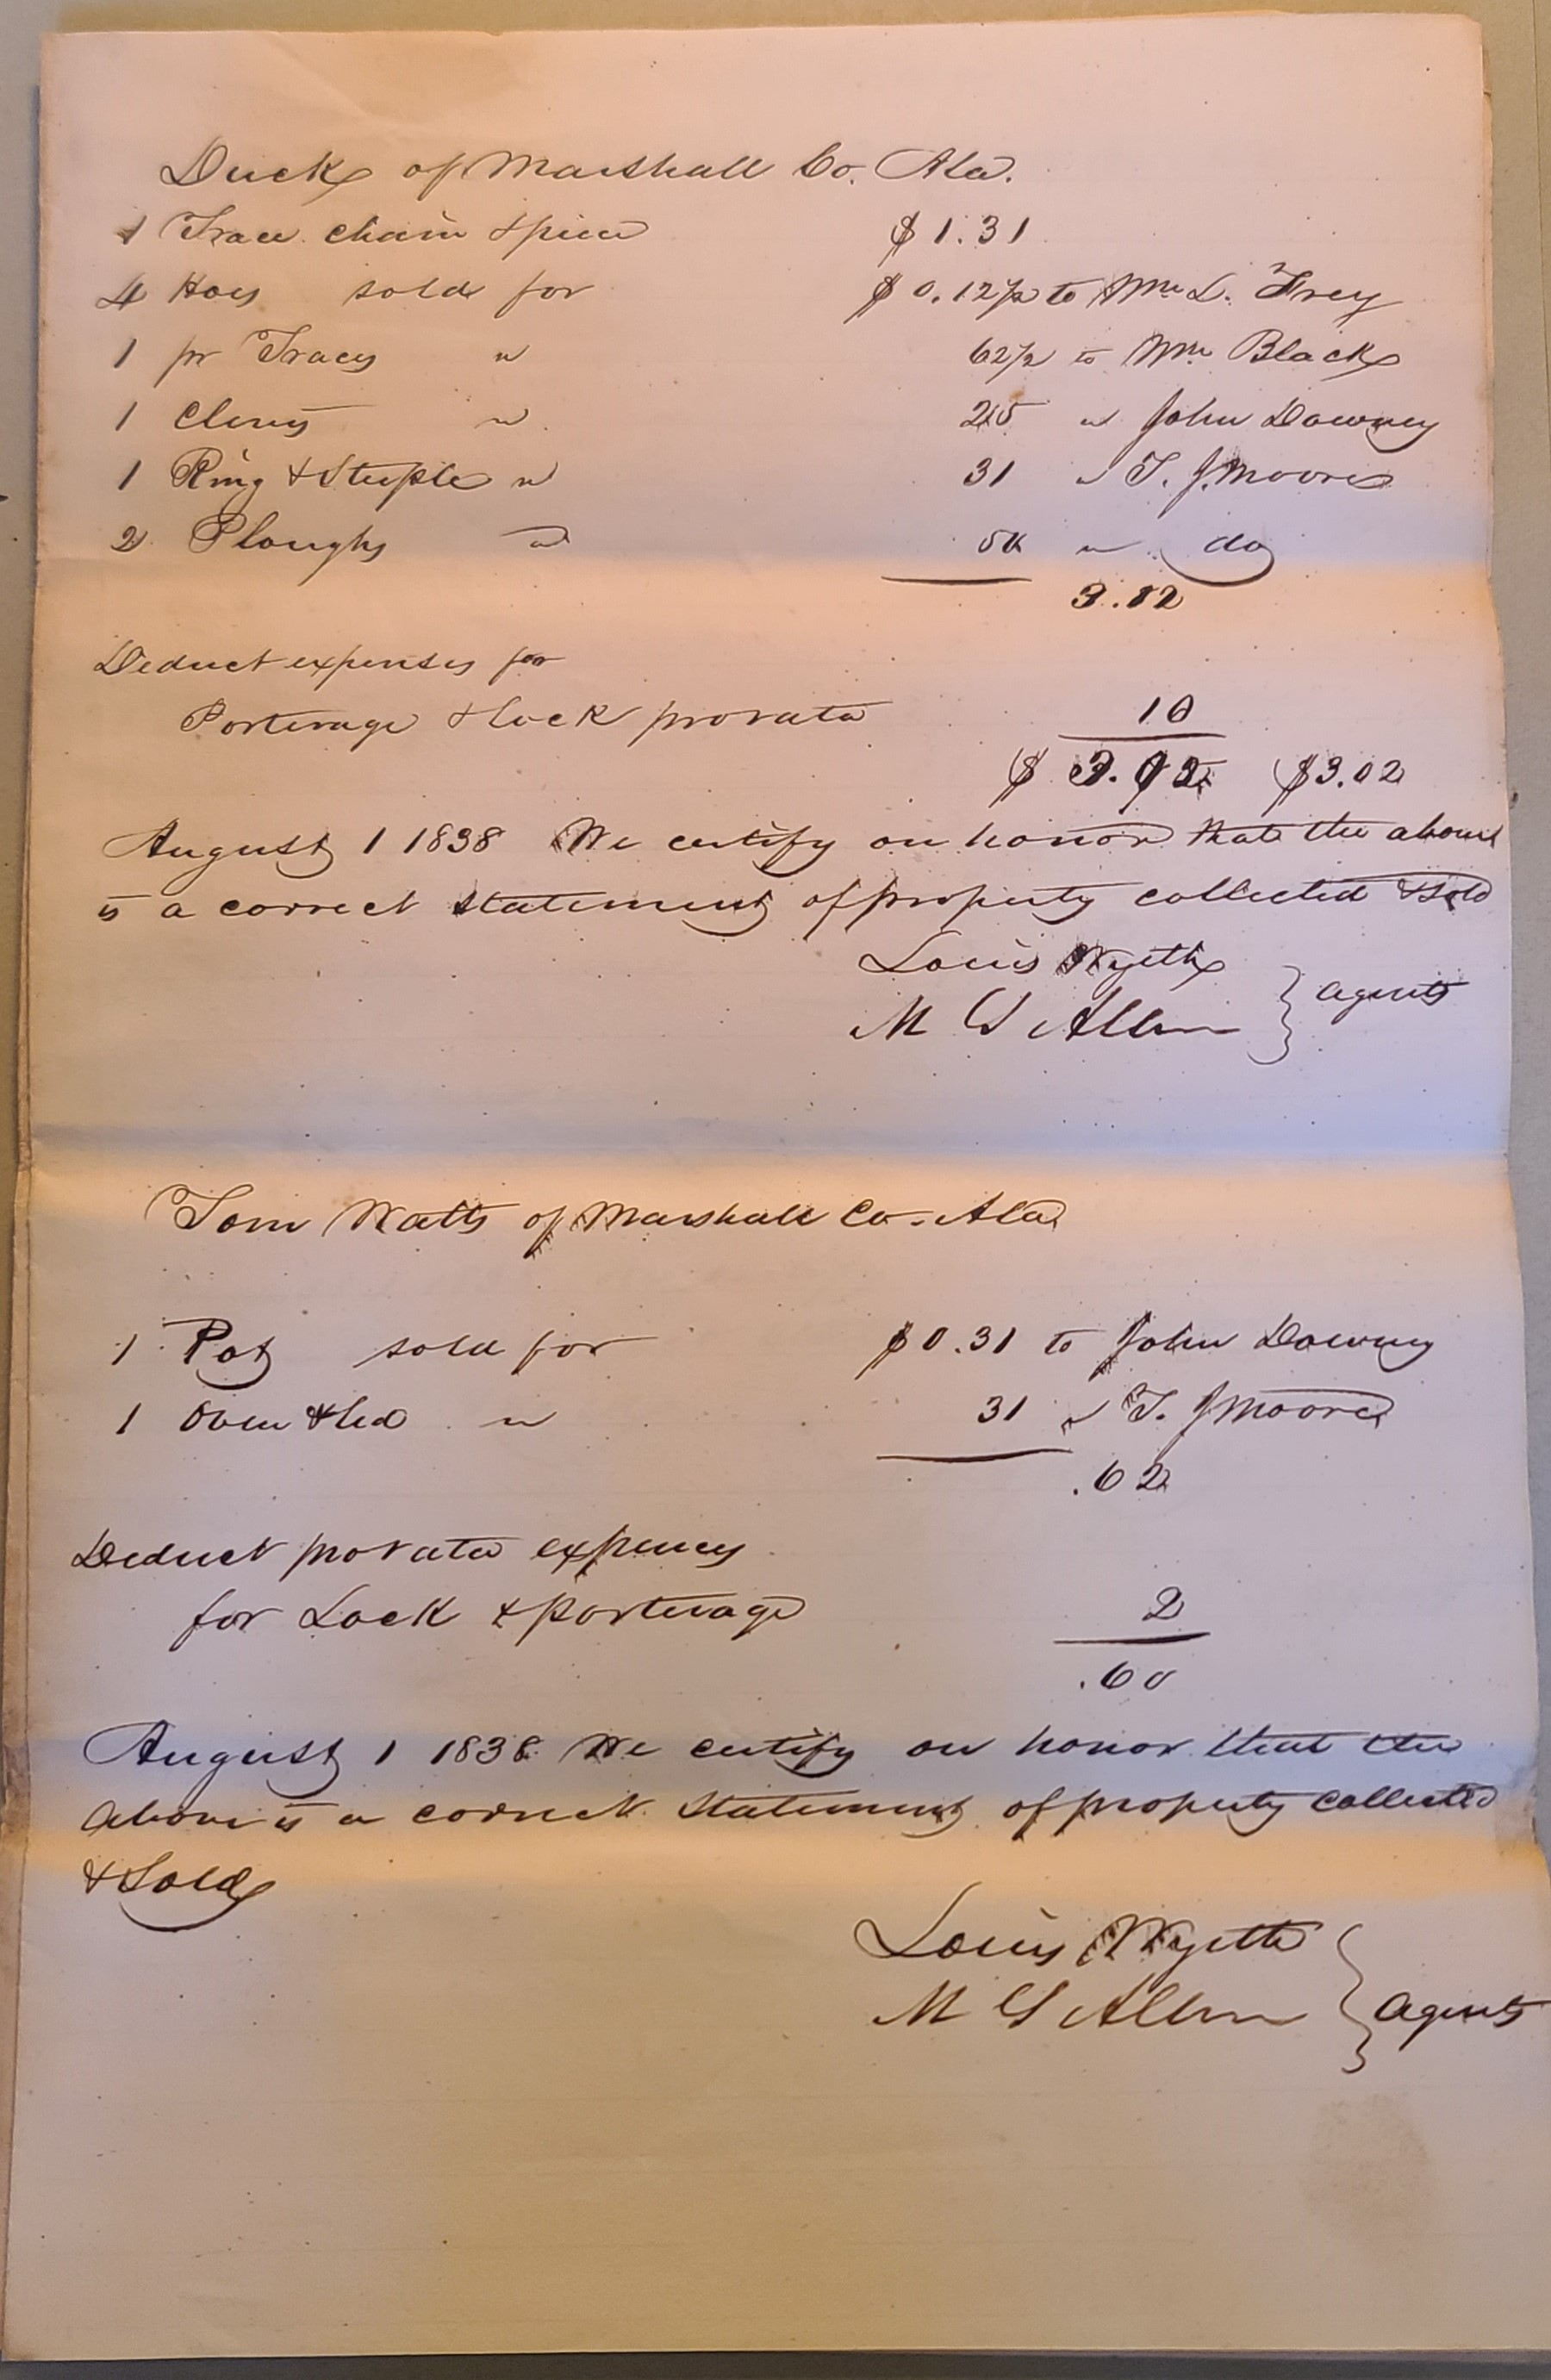 Duck of Marshall Co. Ala.
1 Trace chain & piece $1.31
4 Hoes sold for $0.12½ to Wm L. Frey
1 pr Traces " 62½ to Wm Black
1 Clevis " 25 " John Downey
1 Ring & Steeple " 31 " T. J. Moore
2 Ploughs " 50 " do
3.12
Deduct expenses for
Porterage & lock prorata 10
$3.02
August 1 1838 We certify on honor that the above
is a correct statement of property collected & sold
Louis Wyeth
M G Allen } agents
Tom Watts of Marshall Co. Ala
1 Pot sold for $0.31 to John Downey
1 Oven & led " 31 " T. J Moore
.62
Deduct prorata expences
for Lock & porterage 2
.60
August 1 1838 We certify on honor that the
above is a correct statement of property collected
& Sold
Louis Wyeth
M G Allen } agents